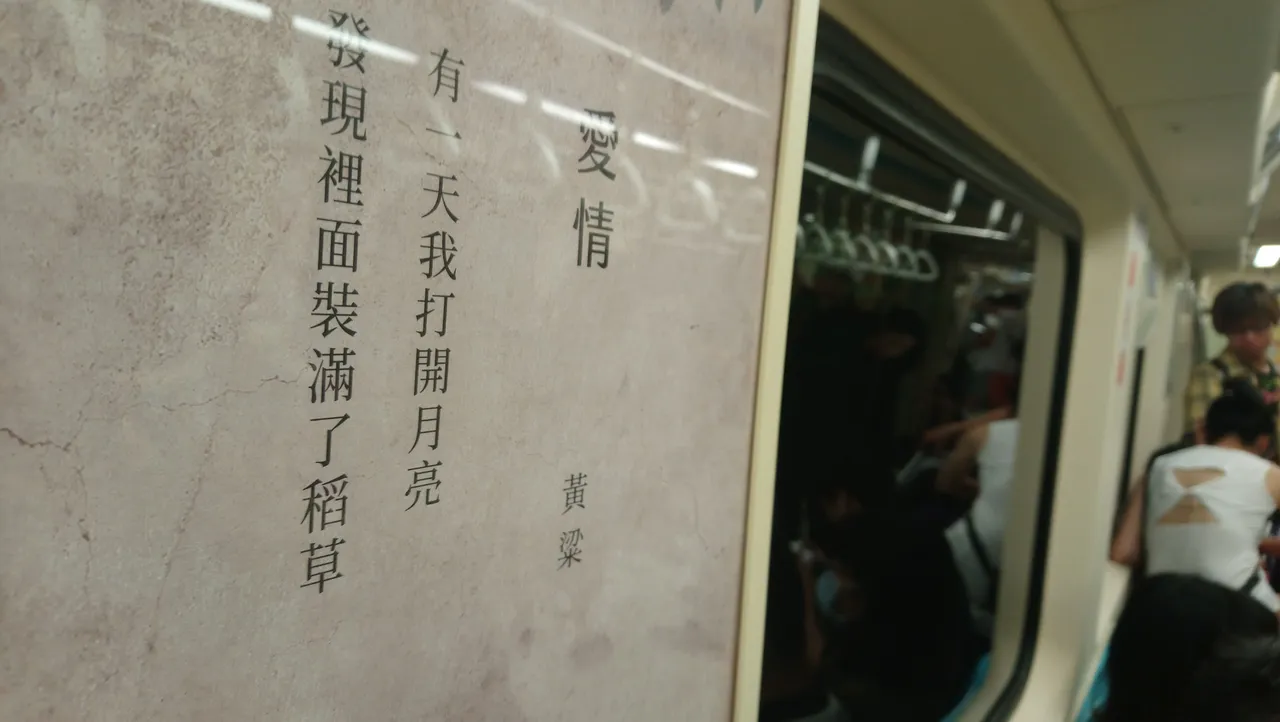 愛情
黃粱
有一天我打開月亮
發現裡面裝滿了稻草